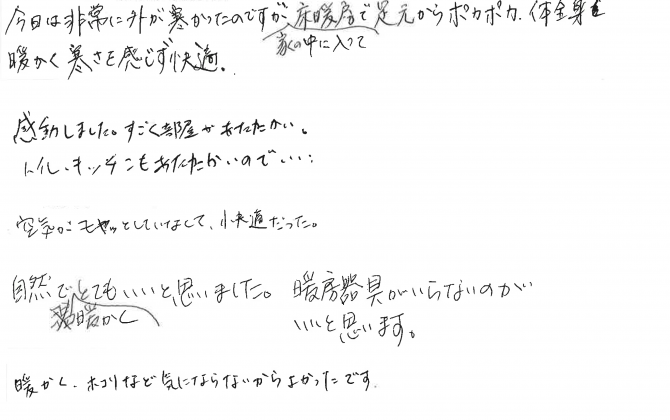 今日は非常に外が寒かったのですが、床暖房で足元からポカポカ、体全身も
家の中に入って
暖かく寒さを感じず快適。
感動しました。すごく部屋があたたかい。
トイレ、キッチンもあたたかいのでいい:
空気がモヤッとしていなくて、快適だった。
自然でとてもいいと思いました。 暖房器具がいらないのが
暖かく
いいと思います。
暖かく、ホコリなど気にならないからよかったです。